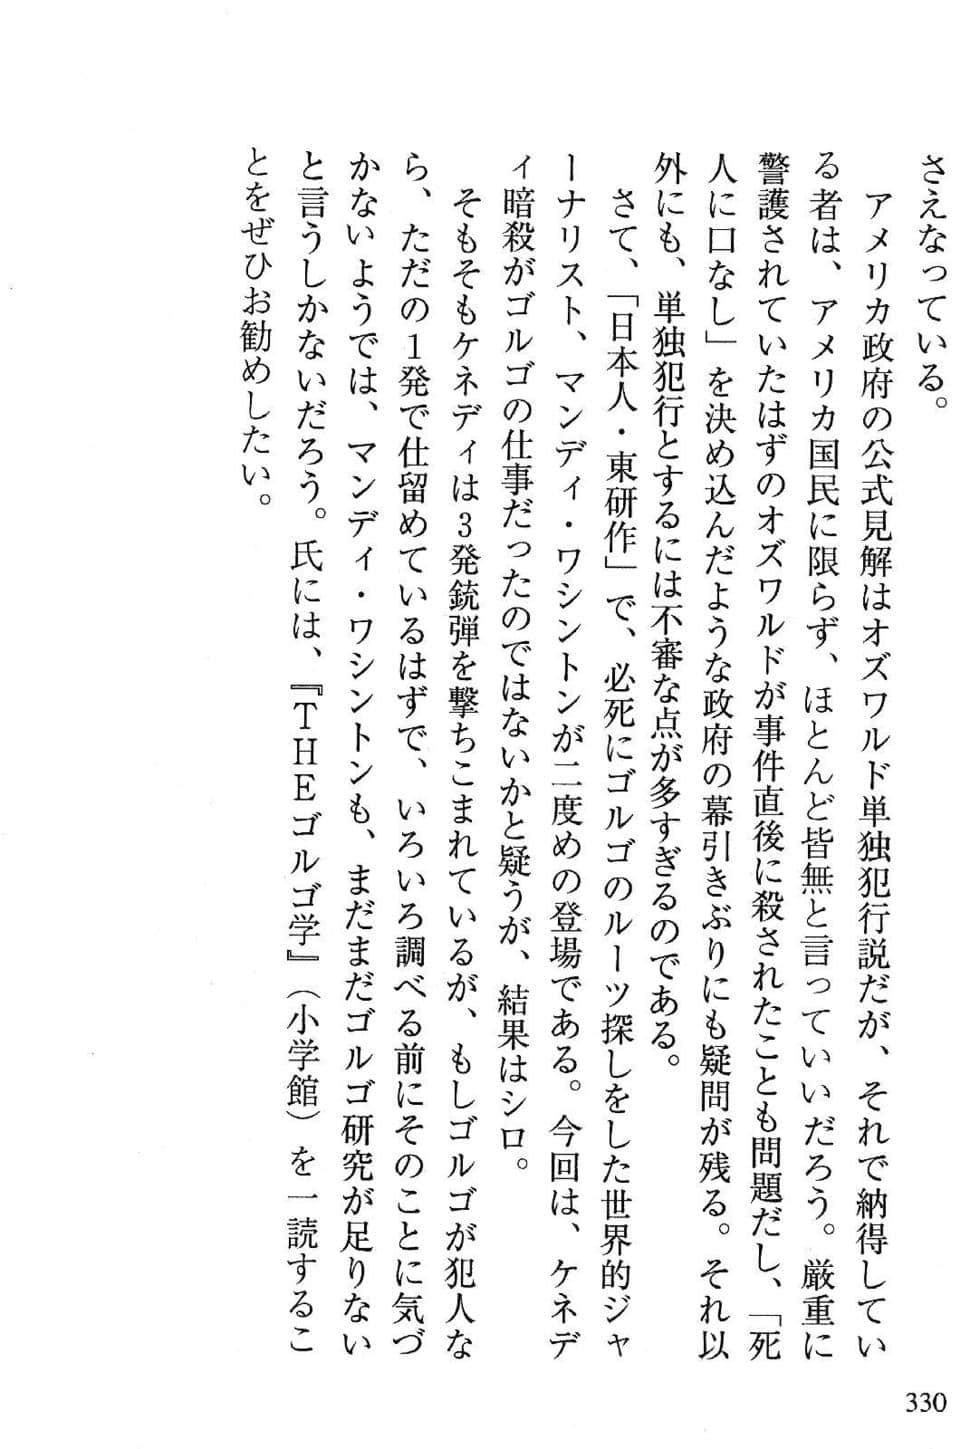 さえなっている。
　アメリカ政府の公式見解はオズワルド単独犯行説だが、それで納得してい
る者は、アメリカ国民に限らず、ほとんど皆無と言っていいだろう。厳重に
警護されていたはずのオズワルドが事件直後に殺されたことも問題だし、「死
人に口なし」を決め込んだような政府の幕引きぶりにも疑問が残る。それ以
外にも、単独犯行とするには不審な点が多すぎるのである。
　さて、「日本人・東研作」で、必死にゴルゴのルーツ探しをした世界的ジャ
ーナリスト、マンディ・ワシントンが二度めの登場である。今回は、ケネデ
ィ暗殺がゴルゴの仕事だったのではないかと疑うが、結果はシロ。
　そもそもケネディは3発銃弾を撃ちこまれているが、もしゴルゴが犯人な
ら、ただの1発で仕留めているはずで、いろいろ調べる前にそのことに気づ
かないようでは、マンディ・ワシントンも、まだまだゴルゴ研究が足りない
と言うしかないだろう。氏には、『THEゴルゴ学』（小学館）を一読するこ
とをぜひお勧めしたい。
330